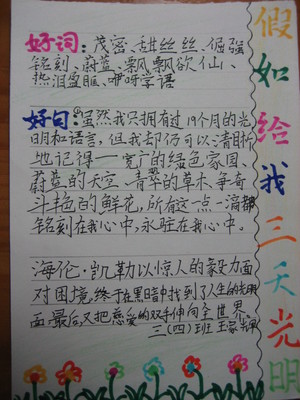 假如给我三天光明
好词：茂密、甜丝丝、倔强
铭刻、蔚蓝、飘飘欲仙、
热泪盈眶、咿呀学语
好句：①虽然我只拥有过19个月的光
明和语言，但我却仍可以清晰
地记得——宽广的绿色家园、
蔚蓝的天空、青翠的草木、争奇
斗艳的鲜花，所有这一点一滴都
铭刻在我心中，永驻在我心中。
海伦·凯勒以惊人的毅力面
对困境，终于在黑暗中找到了人生的光明
面，最后，又把慈爱的双手伸向全世界。
三（四）班 王家